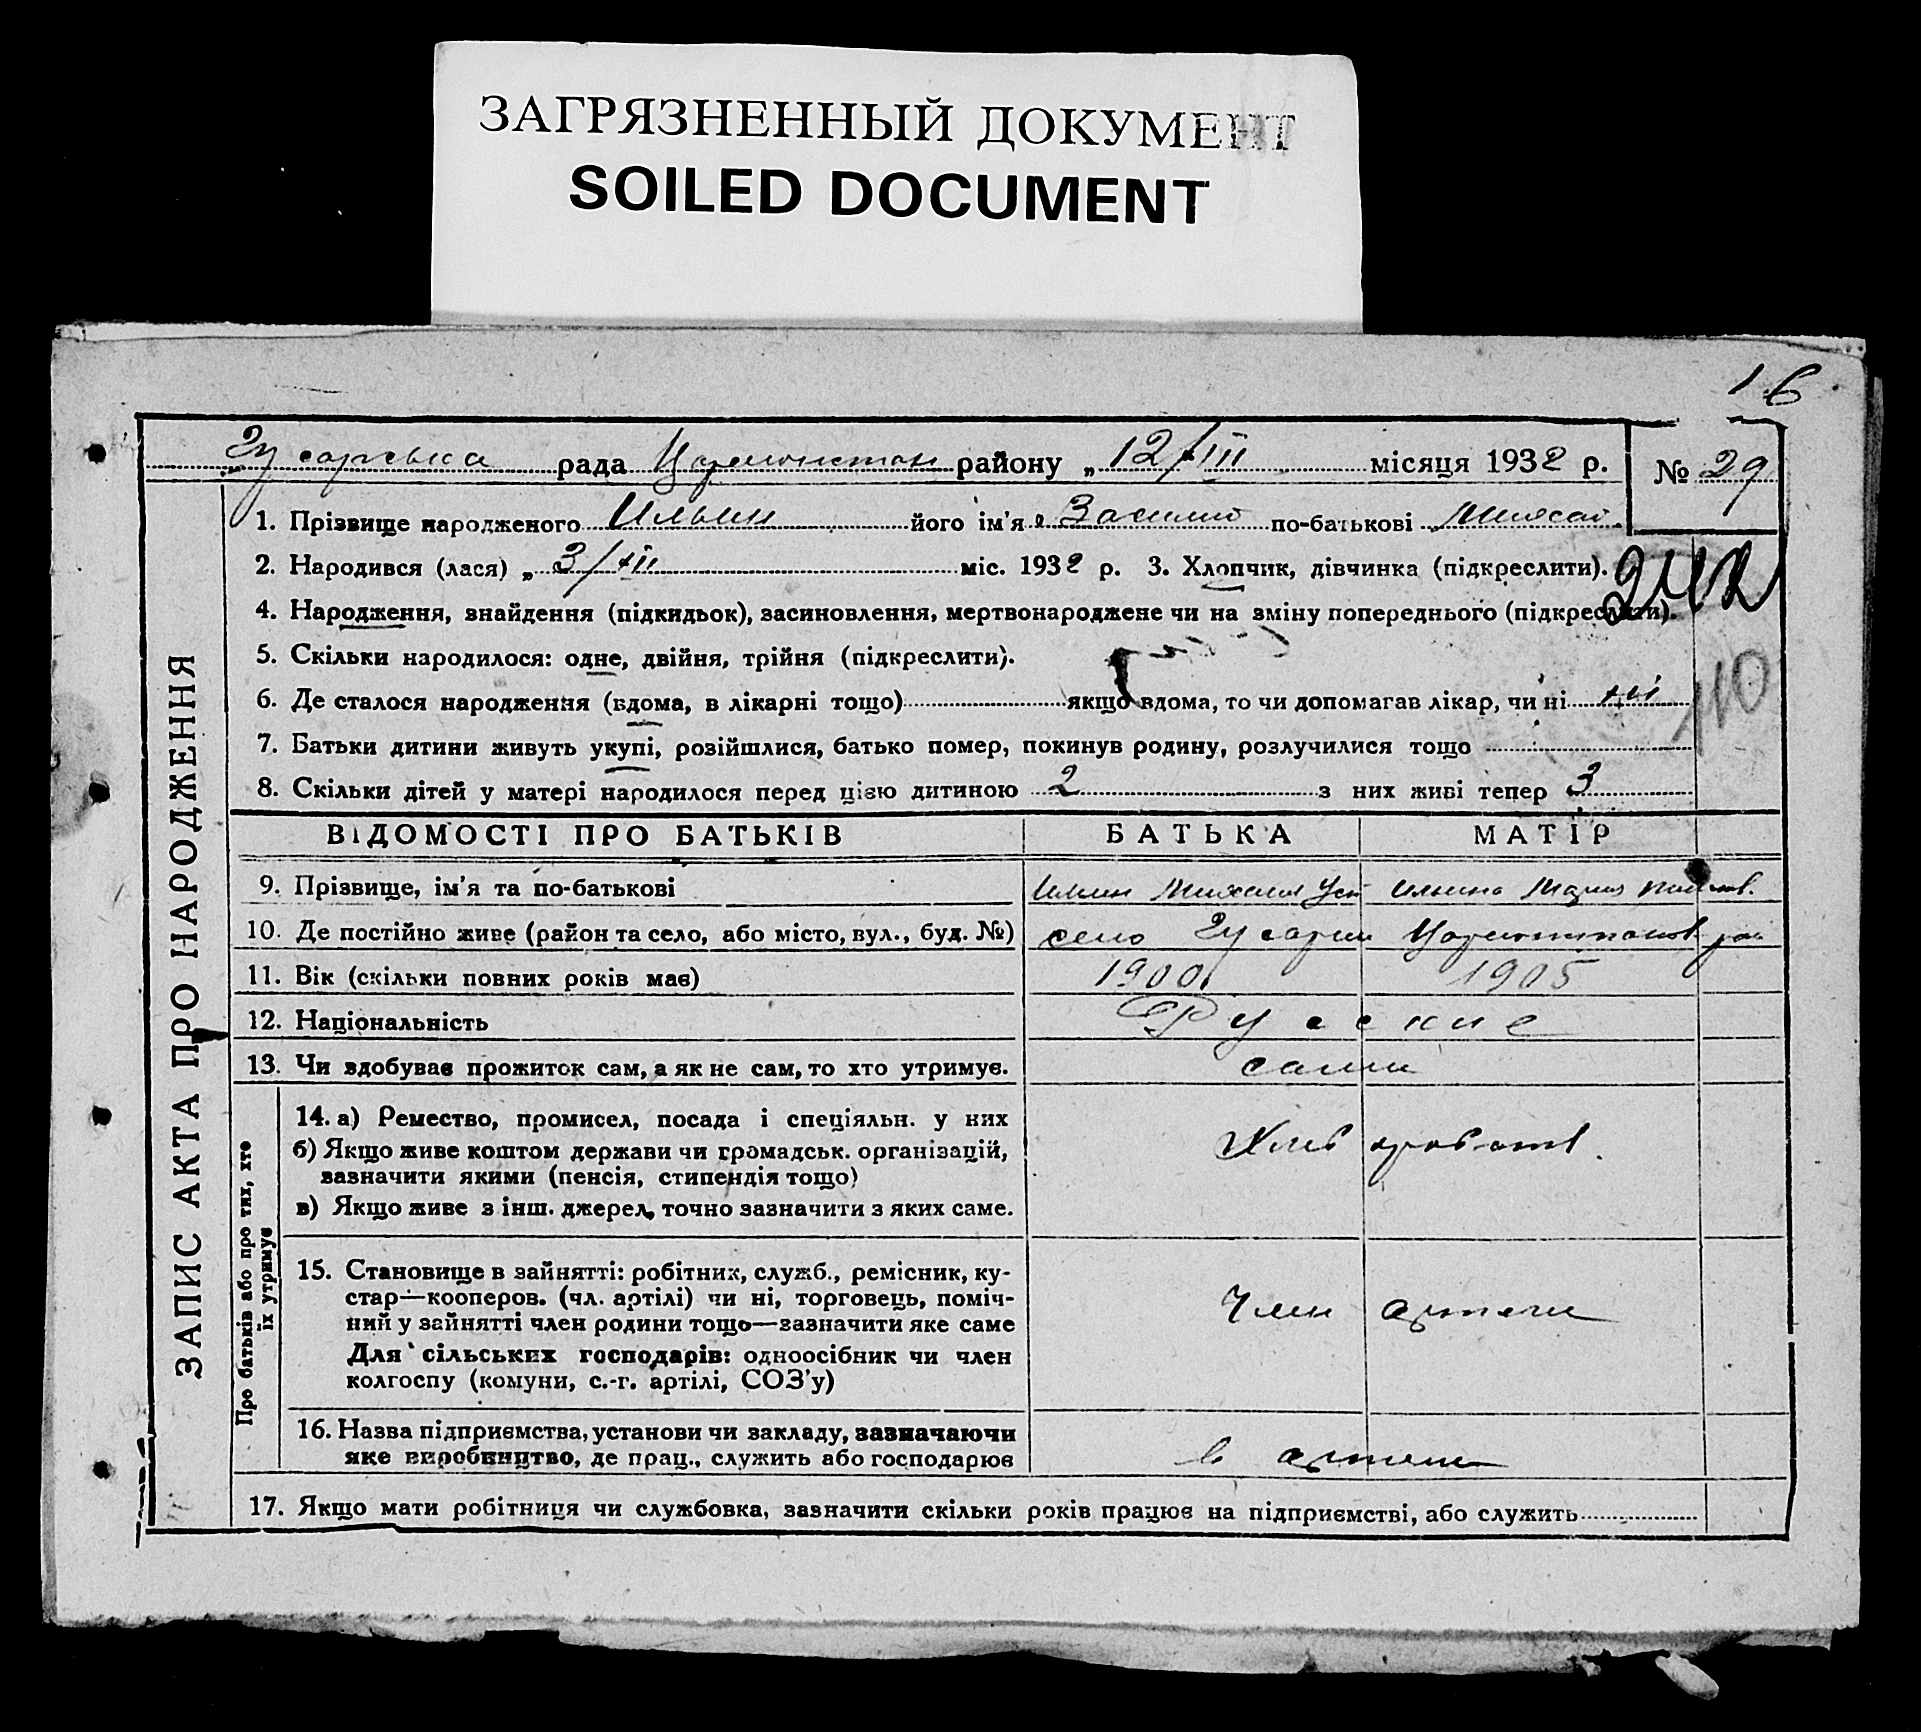 ЗАГРЯЗНЕННЫЙ ДОКУМЕНТ
SOILED DOCUMENT
16
Гусарська рада району „ 12/III місяця 1932 р. № 29
1. Прізвище народженого Ильин його ім'я Василий по-батькові Михай.
2. Народився (лася) „ 3/III міс. 1932 р. 3. Хлопчик, дівчинка (підкреслити).
242
4. Народження, знайдення (підкидьок), засиновлення, мертвонароджене чи на зміну попереднього (підкреслити).
5. Скільки народилося: одне, двійня, трійня (підкреслити).
6. Де сталося народження (вдома, в лікарні тощо) якщо вдома, то чи допомагав лікар, чи ні ні
110
7. Батьки дитини живуть укупі, розійшлися, батько помер, покинув родину, розлучилися тощо
8. Скільки дітей у матері народилося перед цією дитиною 2 з них живі тепер 3
ЗАПИС АКТА ПРО НАРОДЖЕННЯ
ВІДОМОСТІ ПРО БАТЬКІВ БАТЬКА МАТІР
9. Прізвище, ім'я та по-батькові Ильин Михаил Ильина Мария
10. Де постійно живе (район та село, або місто, вул., буд. №) село
11. Вік (скільки повних років має) 1900 1905
12. Національність Руские
13. Чи здобуває прожиток сам, а як не сам, то хто утримує. сами
Про батьків або про тих, хто
їх утримує
14. а) Ремество, промисел, посада і спеціяльн. у них
б) Якщо живе коштом держави чи громадськ. організацій,
зазначити якими (пенсія, стипендія тощо)
в) Якщо живе з інш. джерел, точно зазначити з яких саме.
15. Становище в зайнятті: робітник, служб., ремісник, ку-
стар—кооперов. (чл. артілі) чи ні, торговець, поміч-
ний у зайнятті член родини тощо—зазначити яке саме
Член артели
Для сільських господарів: одноосібник чи член
колгоспу (комуни, с.-г. артілі, СОЗ'у)
16. Назва підприємства, установи чи закладу, зазначаючи
яке виробництво, де прац., служить або господарює в артели
17. Якщо мати робітниця чи службовка, зазначити скільки років працює на підприємстві, або служить